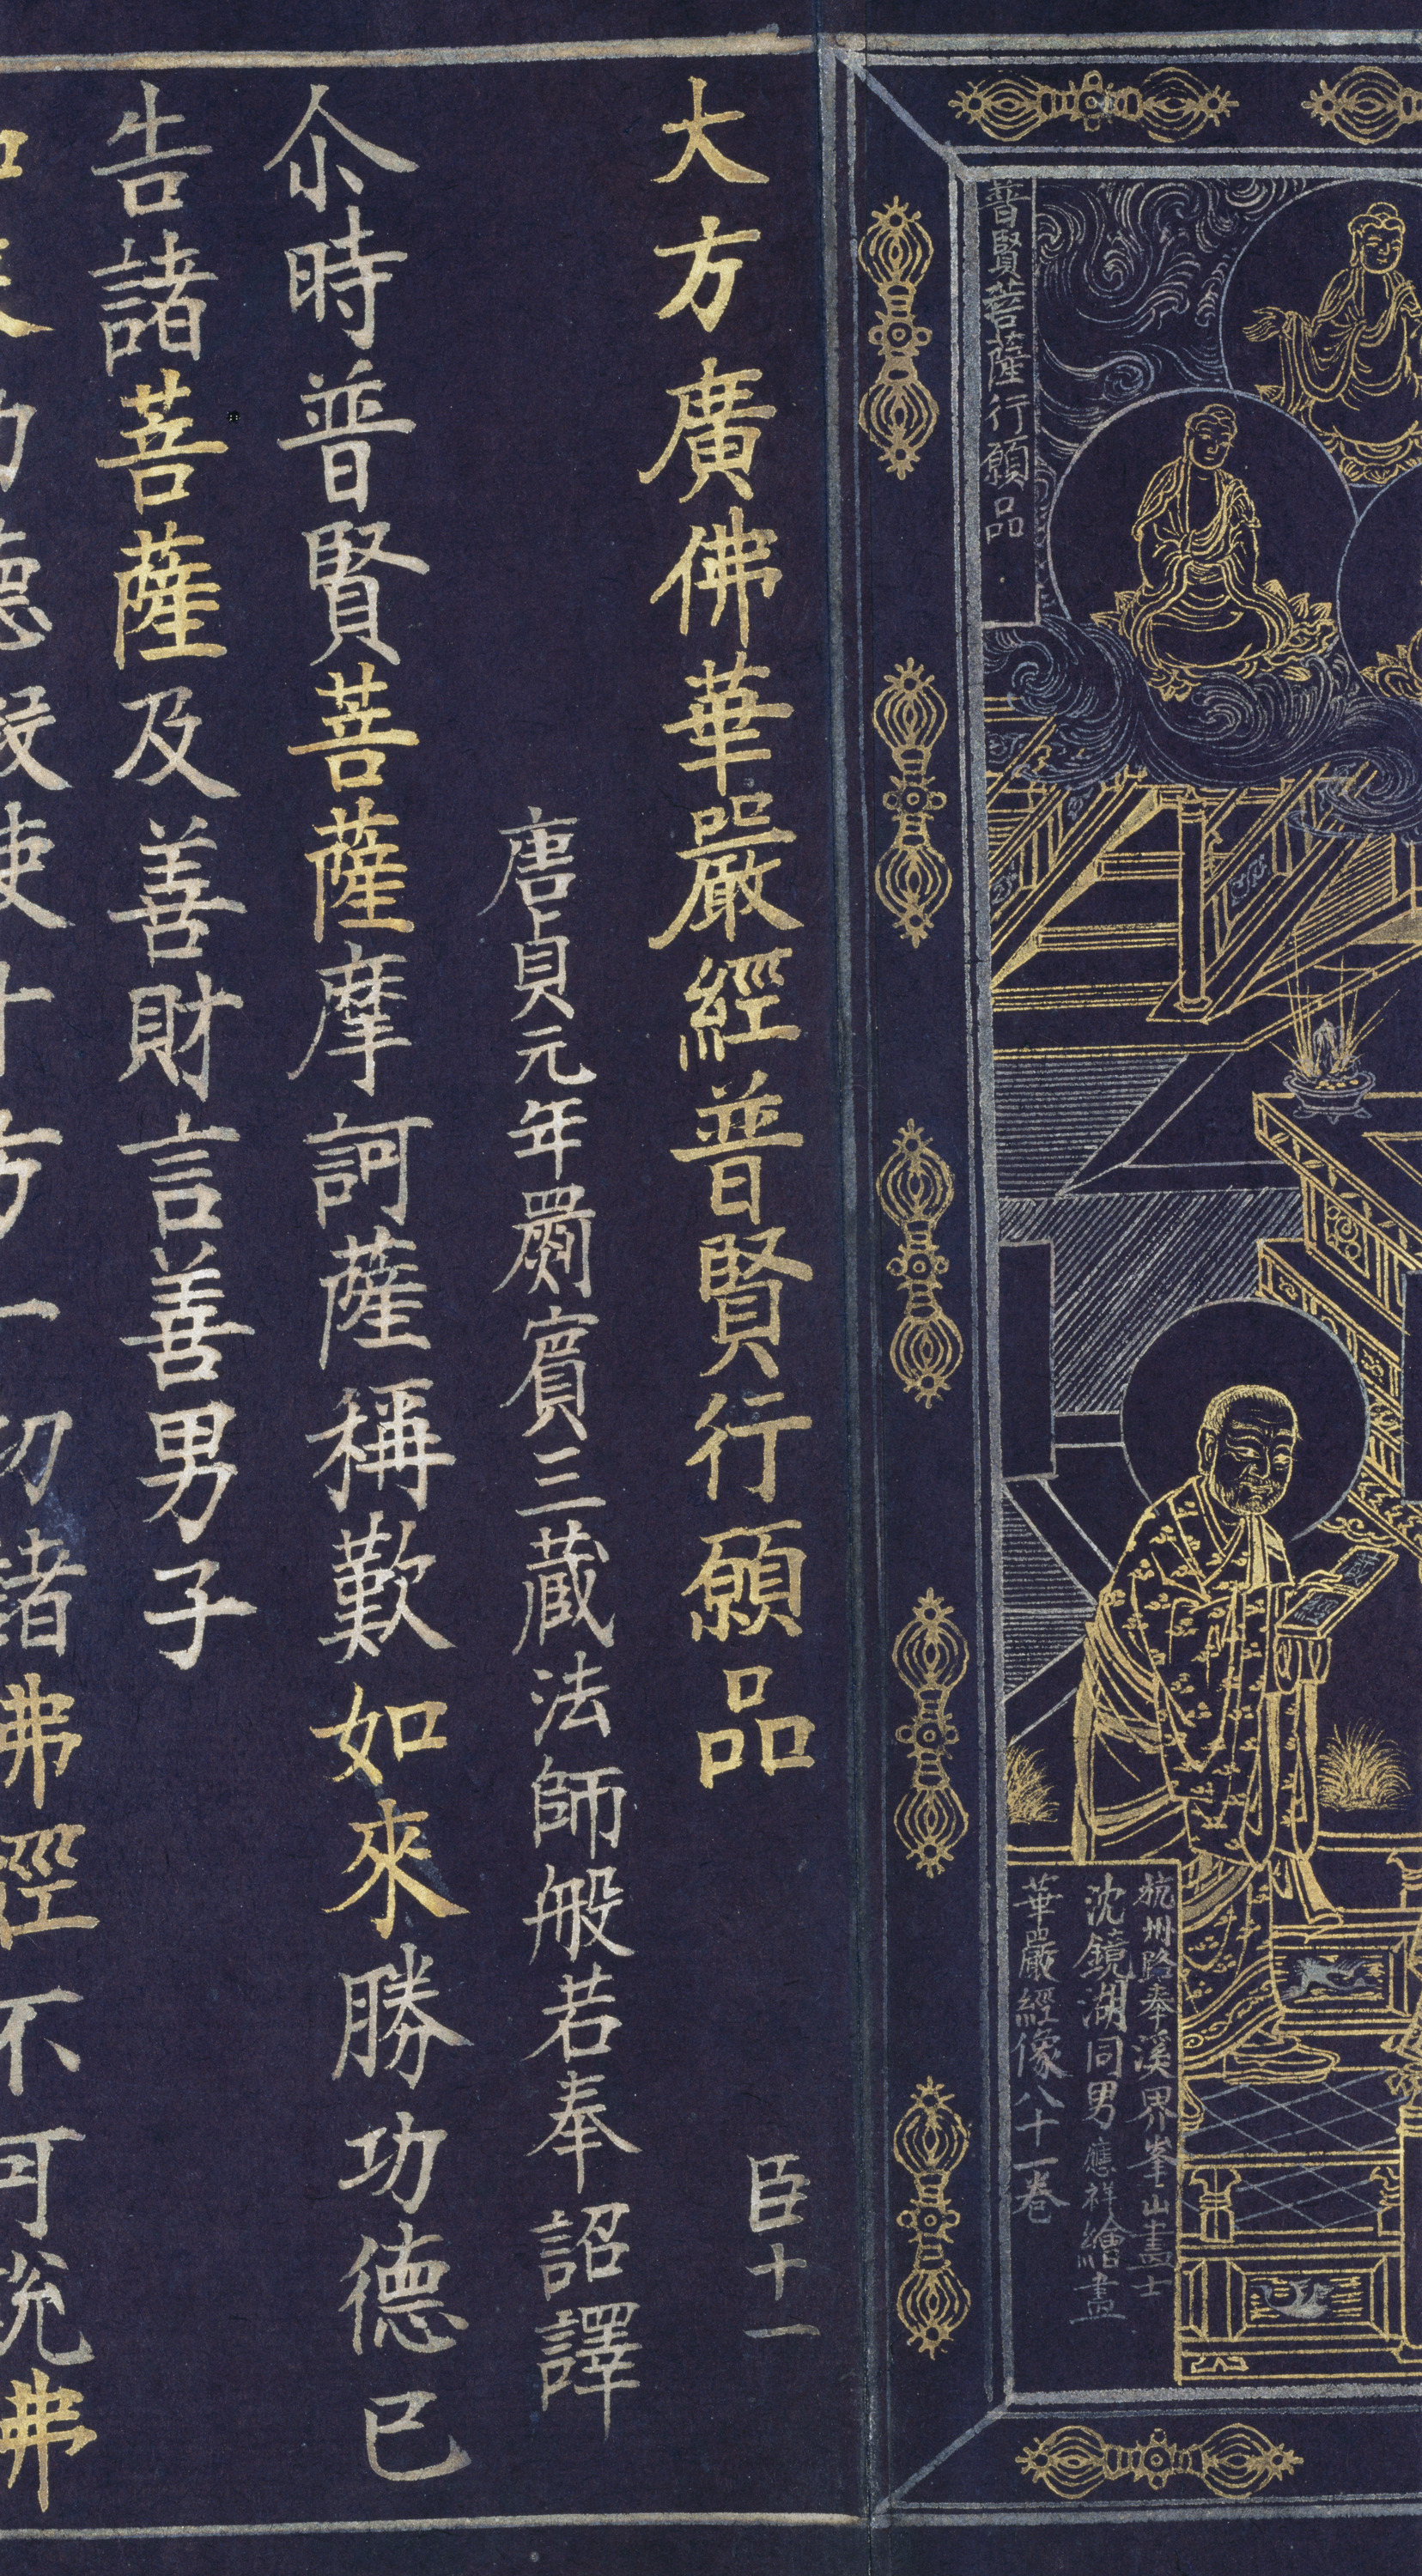 普賢菩薩行願品
杭州路奉溪界峯山畫士
沈鏡湖同男應祥繪畫
華嚴經像八十一卷
大方廣佛華嚴經普賢行願品 臣十一
唐貞元年罽賓三蔵法師般若奉詔譯
尒時普賢菩薩摩訶薩稱歎如來勝功德已
告諸菩薩及善財言善男子
如来功德假使十方一切諸佛經不可說佛